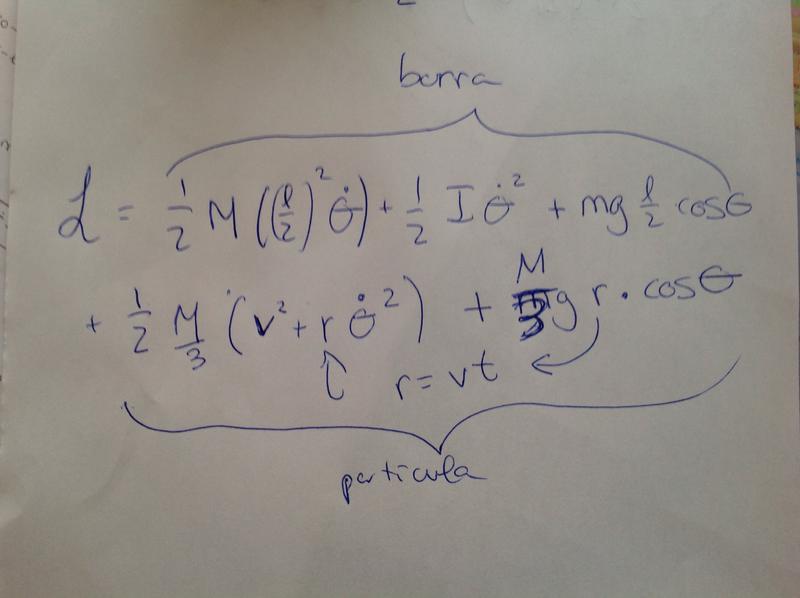 barra
ℒ = 1/2 M ((ℓ/2)² θ̇) + 1/2 I θ̇² + mg ℓ/2 cosθ
+ 1/2 M/3 (v² + r θ̇²) + M/3 g r · cosθ
r = vt
partícula